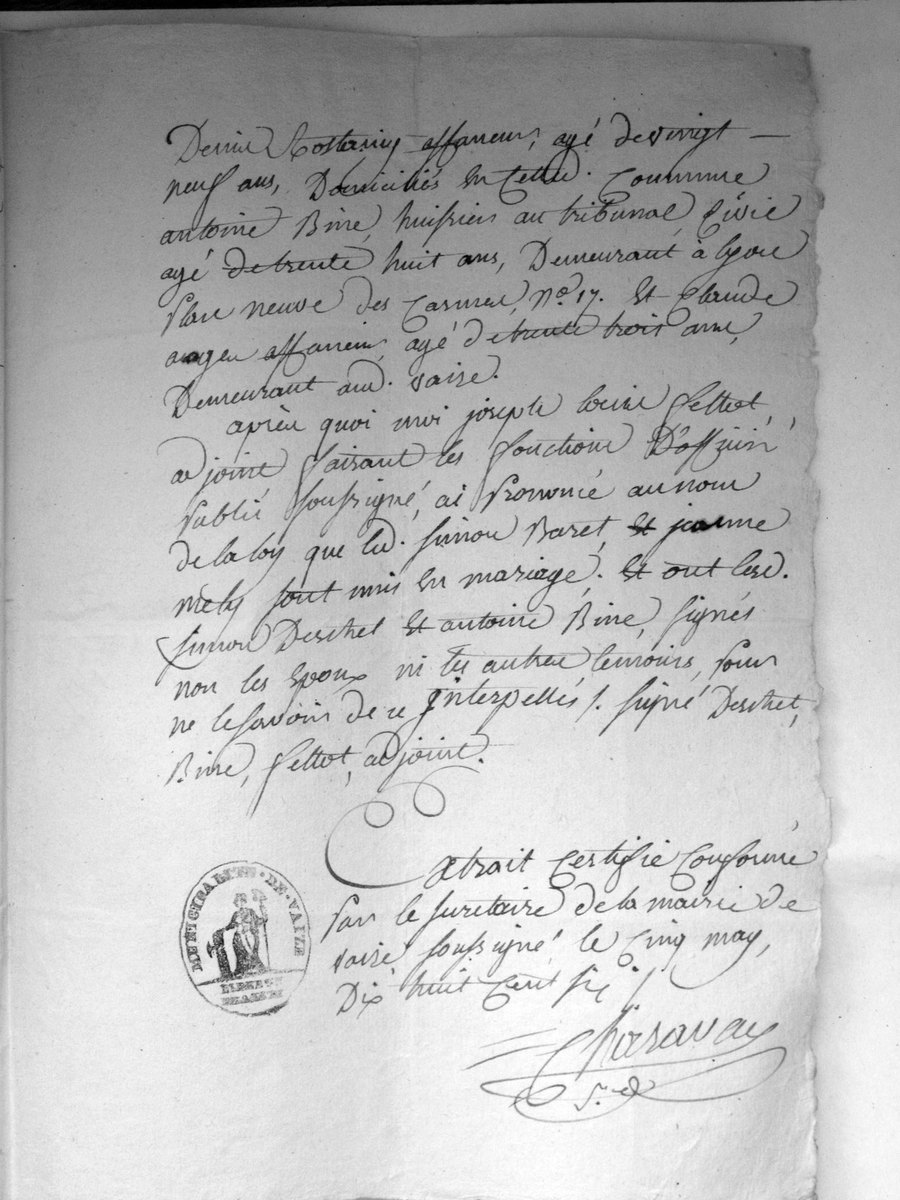 Denis Rostaing affaneur, agé de vingt
neuf ans, Domiciliés en Cette Commune
antoine Bine, huissier au tribunal Civie
agé de trente huit ans, Demeurant à Lyon
Place neuve des Carmes, No. 17. Et Claude
affaneur, agé de trente trois ans,
Demeurant aud. vaise.
après quoi moi joseph Gettot,
adjoint faisant les fonctions D'officié
Public soussigné, ai Prononcé au nom
de la loy que led. Simon Baret, Et jeanne
Mely sont unis En mariage. Et ont lesd.
Simon Deschet Et antoine Bine, signés
non les Epoux ni les autres temoins, Pour
ne le savoir de ce Interpellés /. signé Deschet,
Bine, Gettot, adjoint.
Extrait Certifié Conforme
Par le secretaire de la mairie de
vaise soussigné, le Cinq may,
Dix huit Cent six /
Charavay
MUNICIPALITÉ · DE · VAIZE